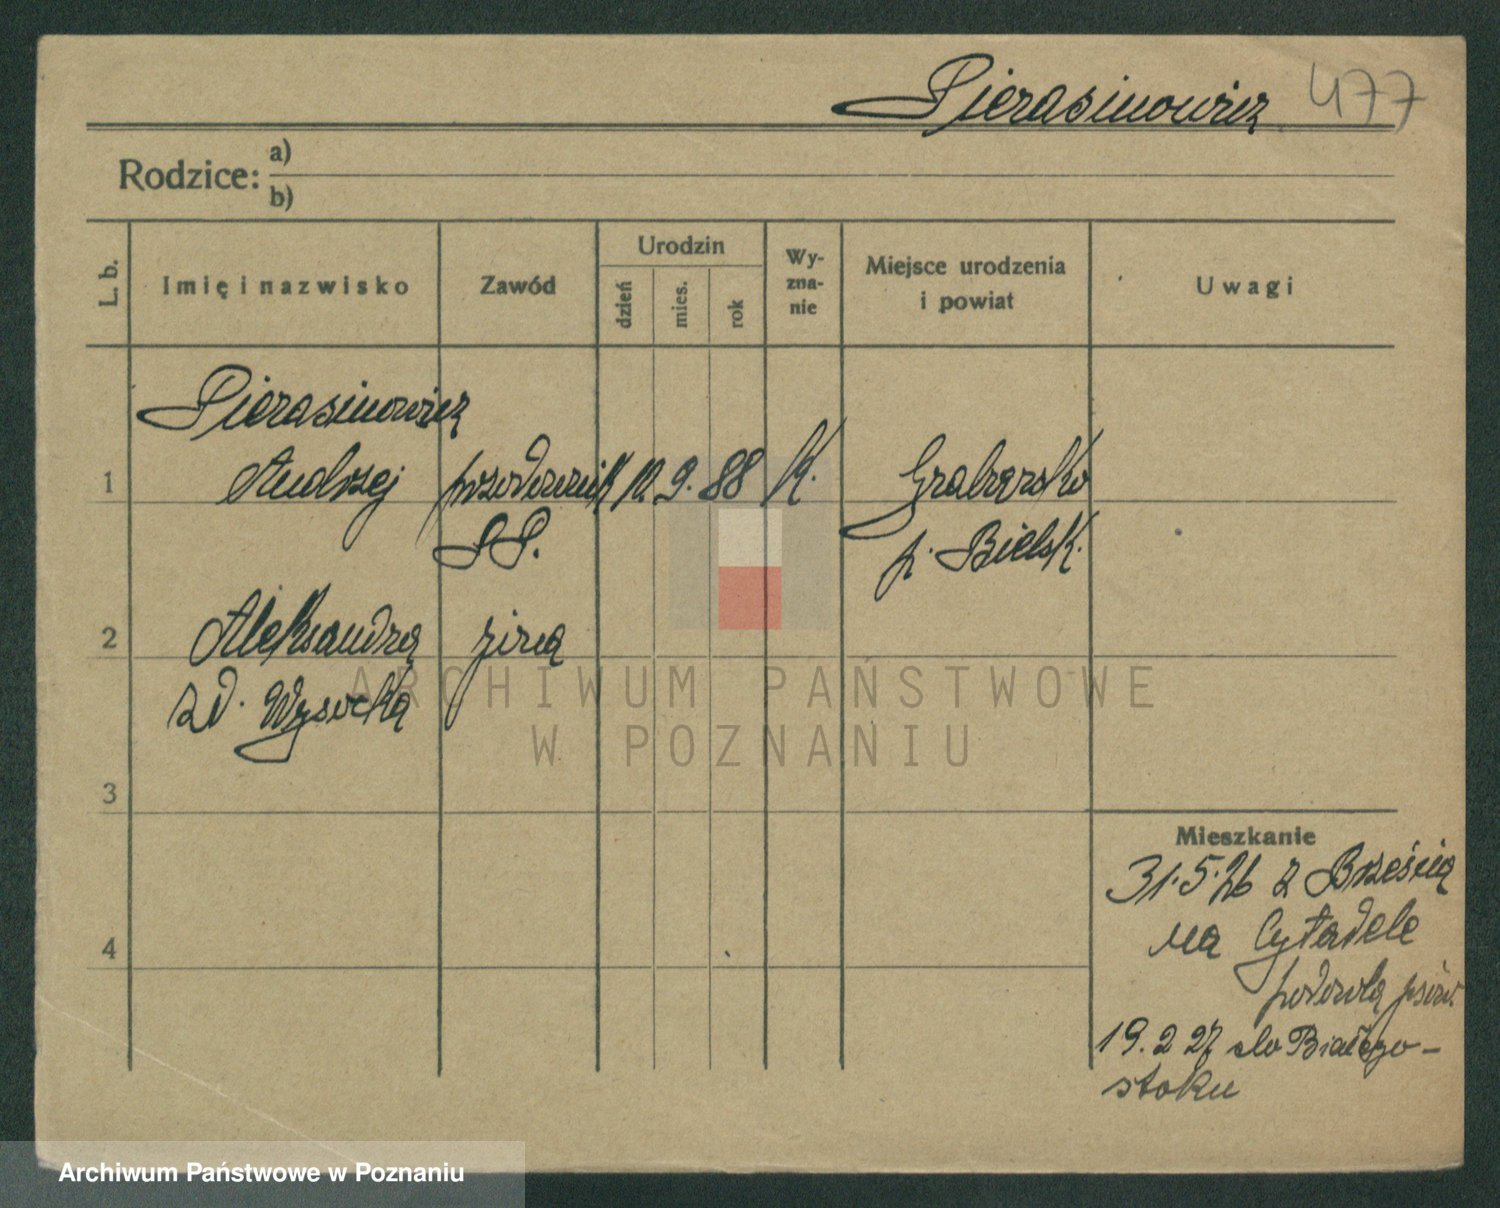 Pierasinowicz 477
Rodzice: a)
b)
L. b.
Imię i nazwisko
Zawód
Urodzin
dzień
mies.
rok
Wy-
zna-
nie
Miejsce urodzenia
i powiat
Uwagi
Pierasinowicz
1 Andrzej przodownik 10. 9. 88 K. Grabarsko
PP. p. Bielsk.
2 Aleksandra żona
zd. Wysocka
3
4
Mieszkanie
31.5.26 z Brześcia
na Cytadelę
19.2 27 do Białego-
stoku
ARCHIWUM PAŃSTWOWE
W POZNANIU
Archiwum Państwowe w Poznaniu